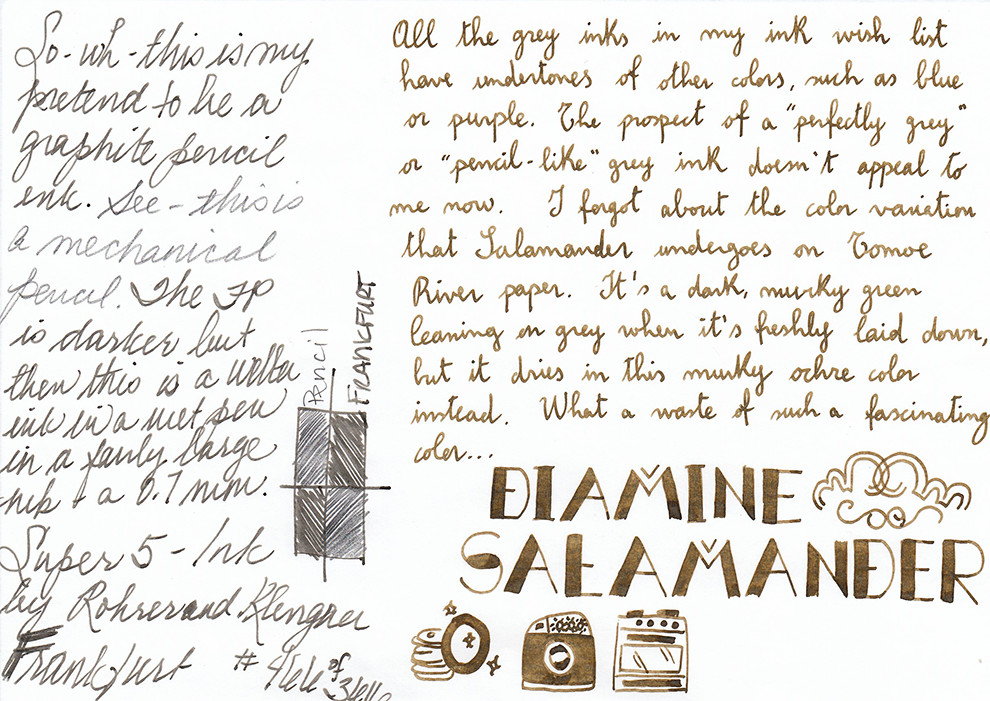 So-wh-this is my
pretend to be a
graphite pencil
ink. See - this is
a mechanical
pencil. The FP
is darker but
then this is a wetter
ink in a wet pen
in a fairly large
nib - a 0.7 mm.
Pencil
FRANKFURT
Super 5 - Ink
by Rohrer and Klingner
Frankfurt # of
All the grey inks in my ink wish list
have undertones of other colors, such as blue
or purple. The prospect of a "perfectly grey"
or "pencil-like" grey ink doesn't appeal to
me now. I forgot about the color variation
that Salamander undergoes on Tomoe
River paper. It's a dark, murky green
leaning on grey when it's freshly laid down,
but it dries in this murky ochre color
instead. What a waste of such a fascinating
color...
DIAMINE
SALAMANDER